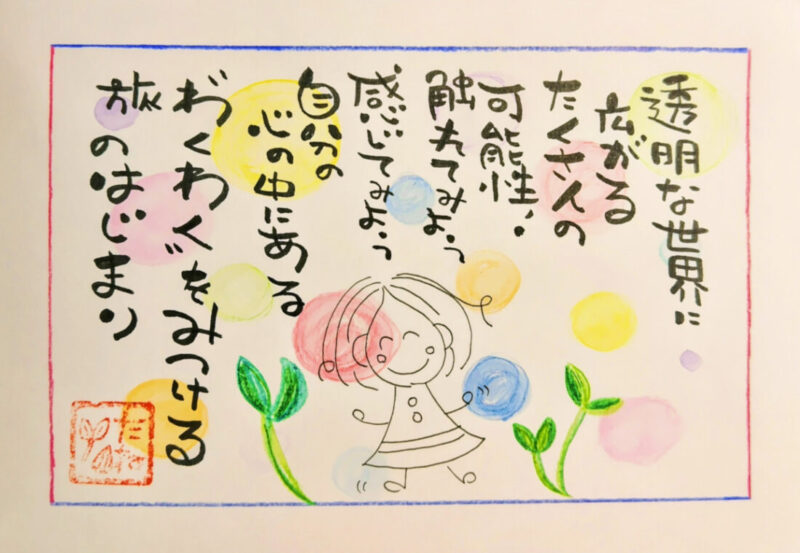 透明な世界に
広がる
たくさんの
可能性!
触れてみよう
感じてみよう
自分の
心の中にある
わくわくをみつける
旅のはじまり